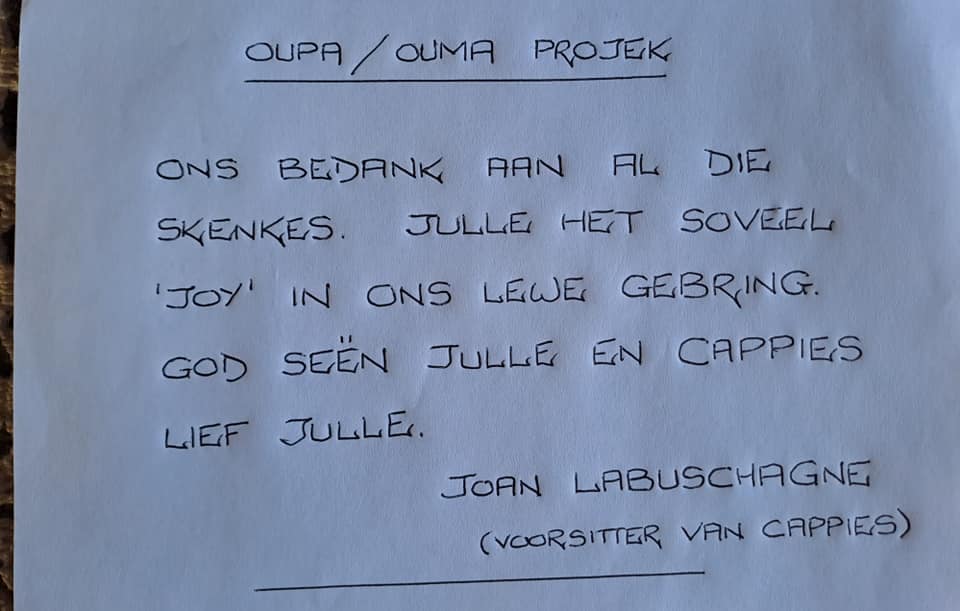 OUPA / OUMA PROJEK
ONS BEDANK AAN AL DIE
SKENKES. JULLE HET SOVEEL
'JOY' IN ONS LEWE GEBRING.
GOD SEËN JULLE EN CAPPIES
LIEF JULLE.
JOAN LABUSCHAGNE
(VOORSITTER VAN CAPPIES)